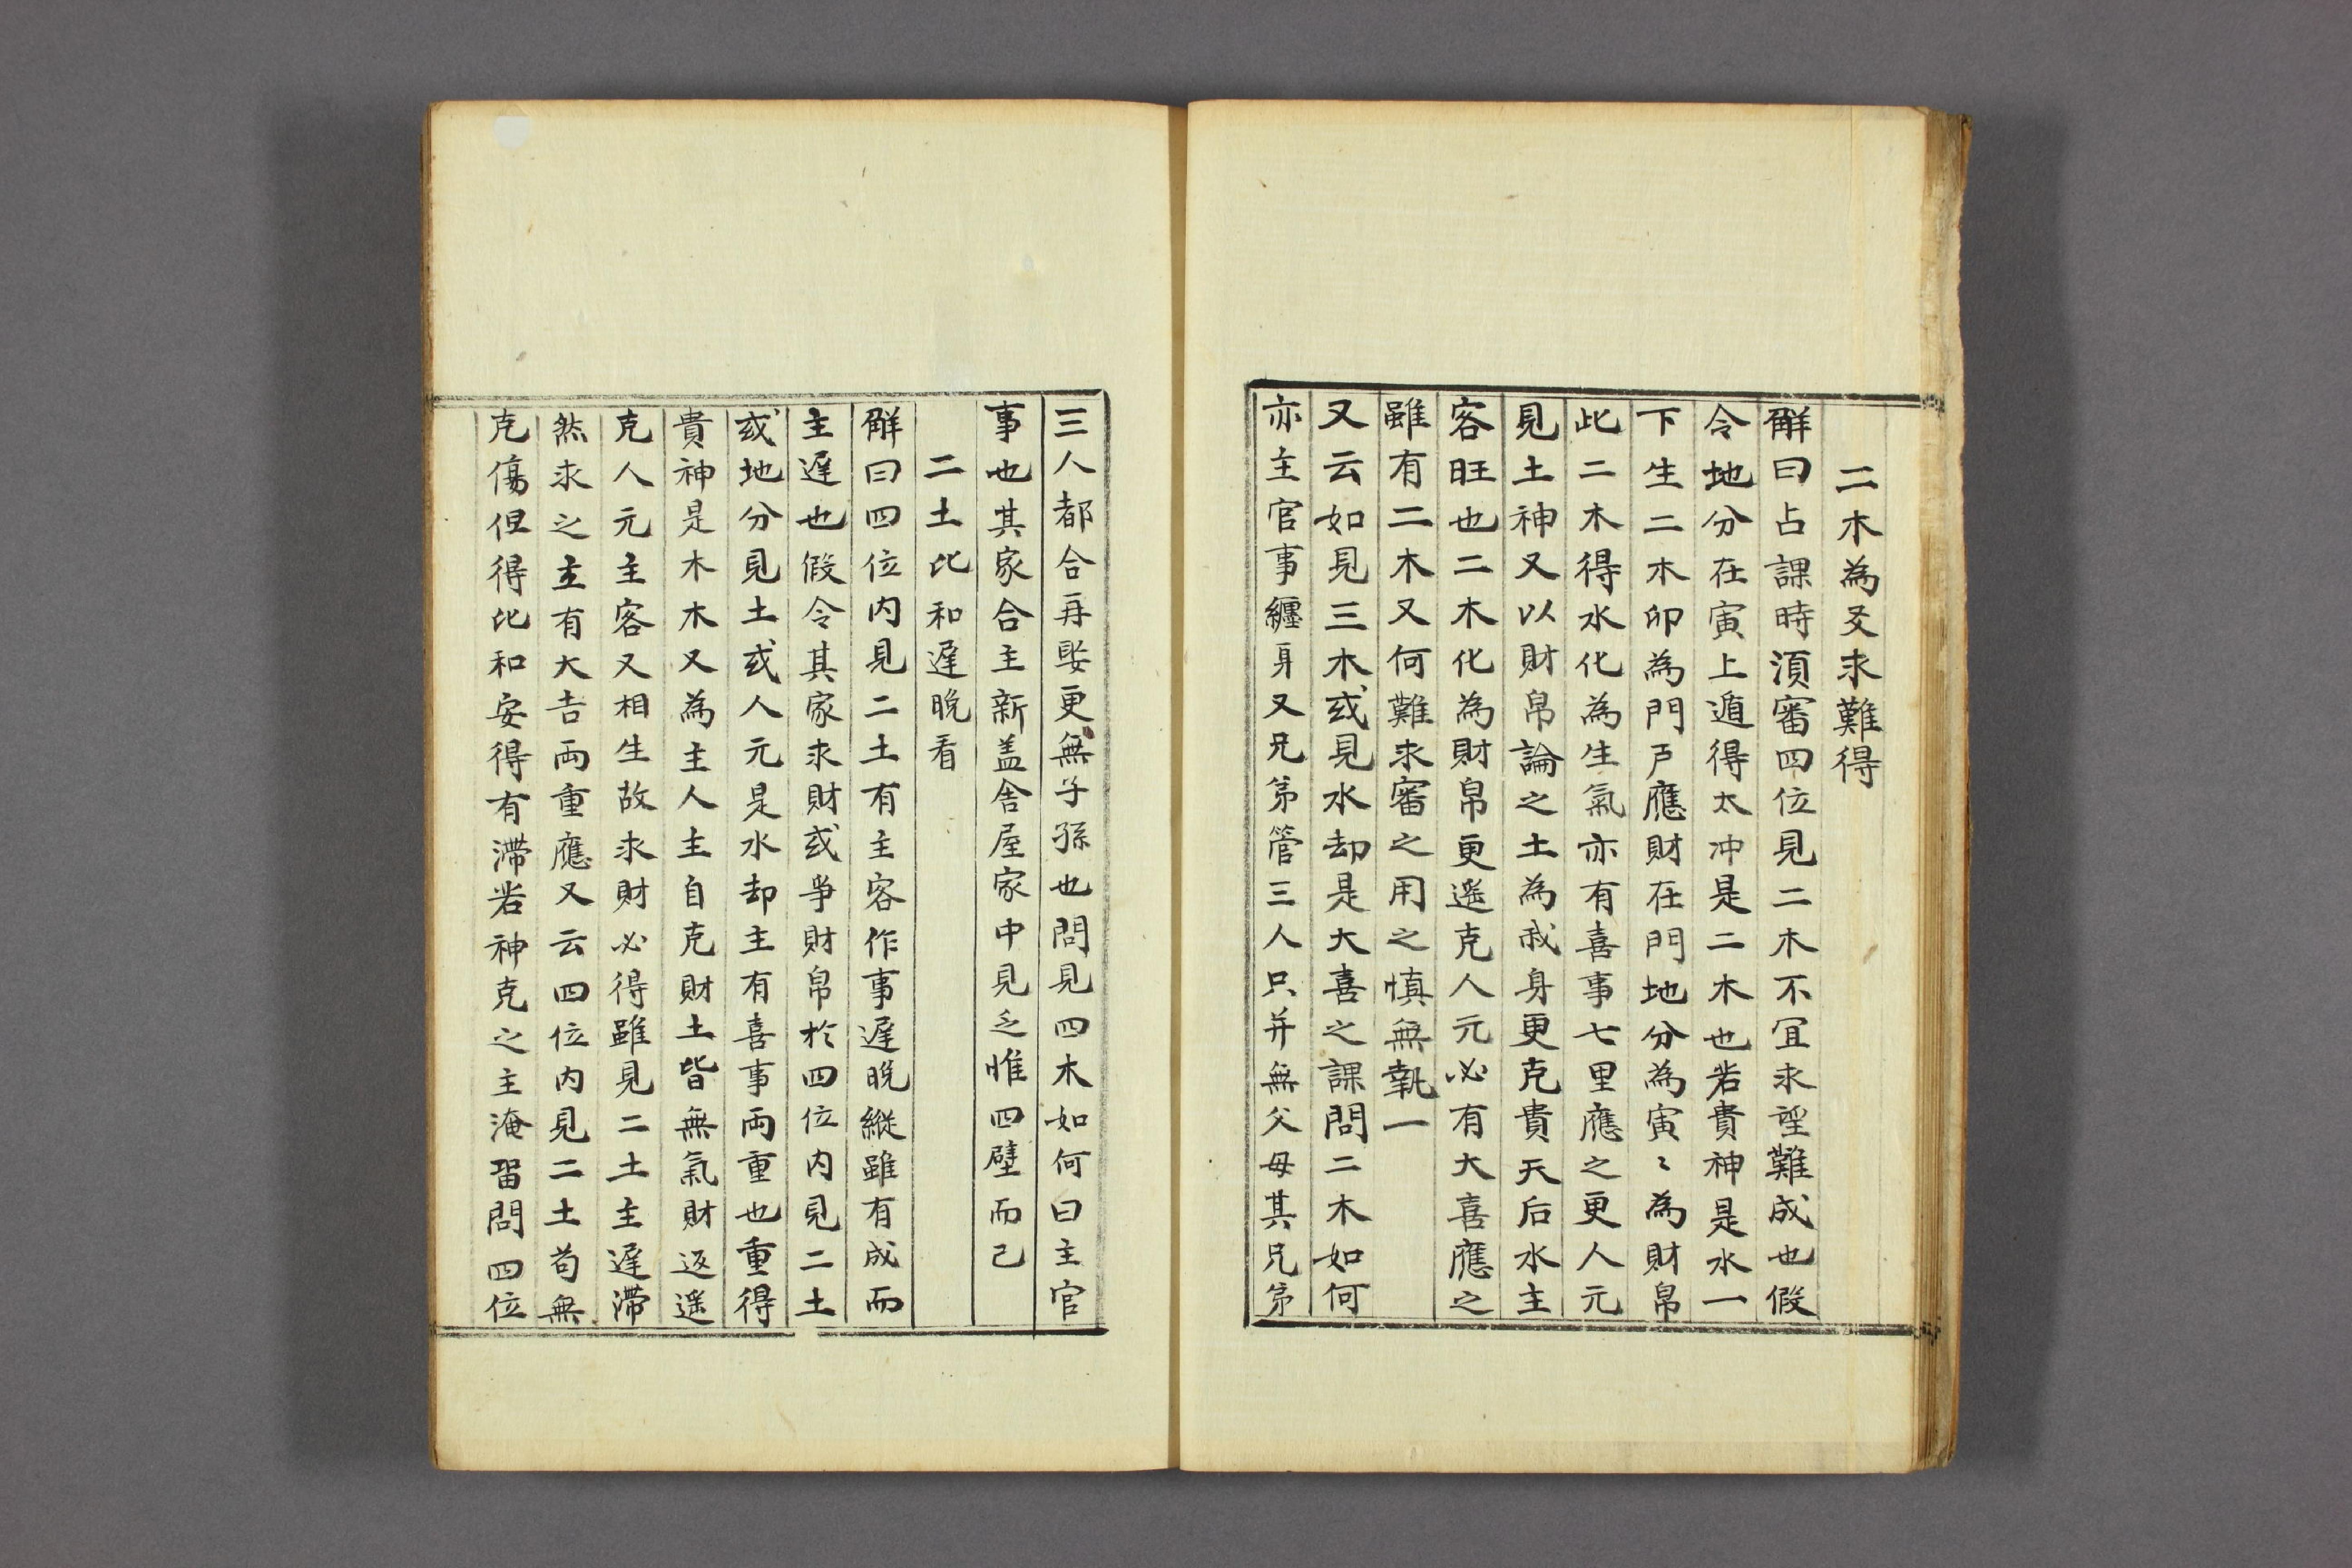 二木為爻求難得
解曰占課時須審四位見二木不宜求望難成也假
令地分在寅上遁得太冲是二木也若貴神是水一
下生二木卯為門戸應財在門地分為寅〻為財帛
此二木得水化為生氣亦有喜事七里應之更人元
見土神又以財帛論之土為戒身更克貴天后水主
客旺也二木化為財帛更遥克人元必有大喜應之
雖有二木又何難求審之用之慎無執一
又云如見三木或見水却是大喜之課問二木如何
亦主官事纏身又兄弟管三人只并無父母其兄弟
三人都合再娶更無子孫也問見四木如何曰主官
事也其家合主新盖舎屋家中見乏惟四壁而已
二土比和遲晩看
解曰四位内見二土有主客作事遲晩縱雖有成而
主遲也假令其家求財或爭財帛於四位内見二土
或地分見土或人元是水却主有喜事両重也重得
貴神是木木又為主人主自克財土皆無氣財返遥
克人元主客又相生故求財必得雖見二土主遲滯
然求之主有大吉両重應又云四位内見二土苟無
克傷但得比和安得有滯若神克之主淹畱問四位